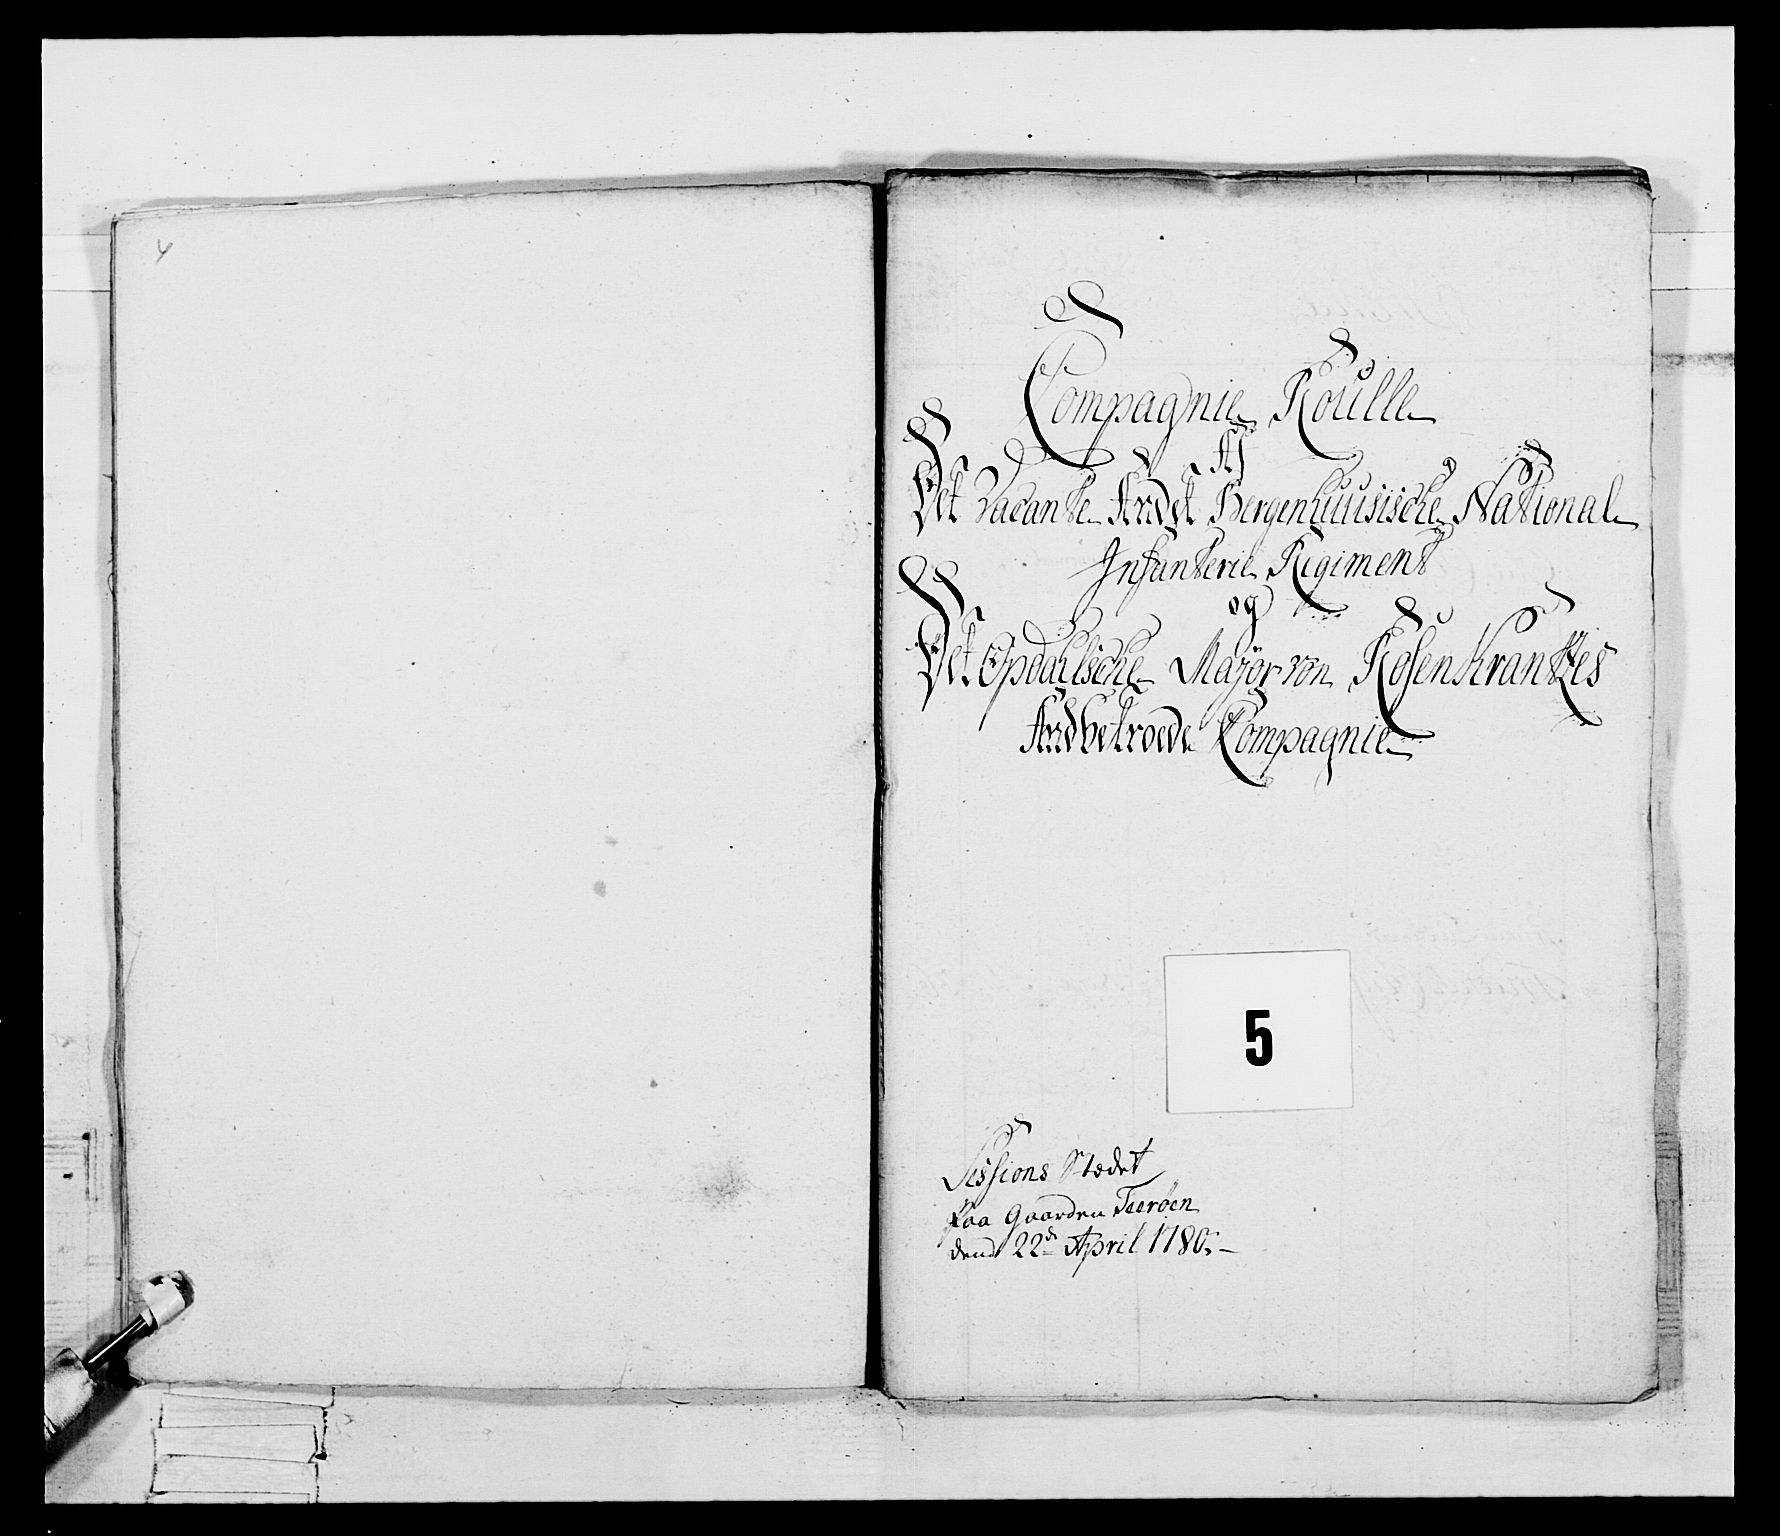 Compagnie Roulle
Af
Det Vacante Andet Bergenhuusische National
Infanterie Regiment
og
Det Opdalske Major von Rosenkrantzes
Andbetroede Compagnie
5
Sessions Stædet
Paa Gaarden Teerøen
dend 22de April 1780.